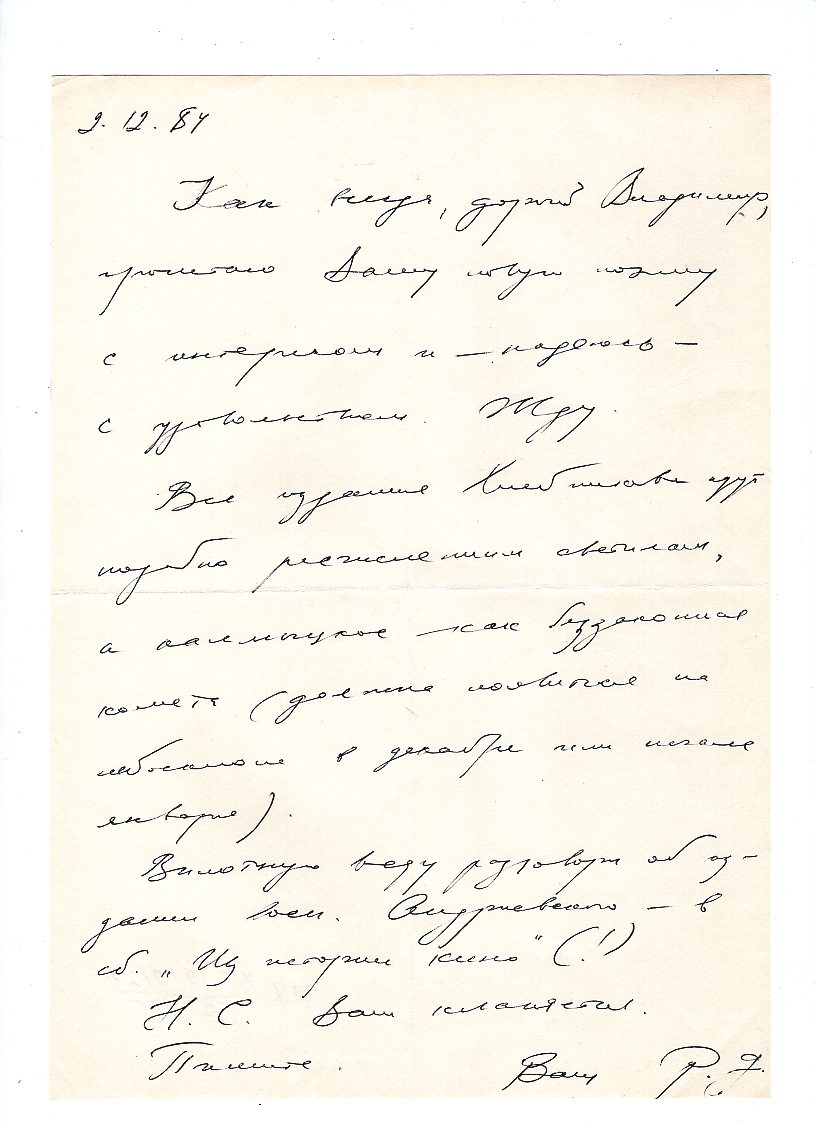 2. 12. 84
Как всегда, дорогой Владимир,
прочитаю Вашу новую поэму
с интересом и — надеюсь —
с удовольствием. Жду.
Все издания Хлебникова идут
подобно светилам,
а калмыцкое — как беззаконная
комета (должна появиться на
небосклоне в декабре или начале
января).
Вплотную веду разговоры об из-
дании восп. Андриевского — в
сб. „Из истории кино" (!)
Н. С. Вам кланяется.
Пишите. Ваш Р. Д.